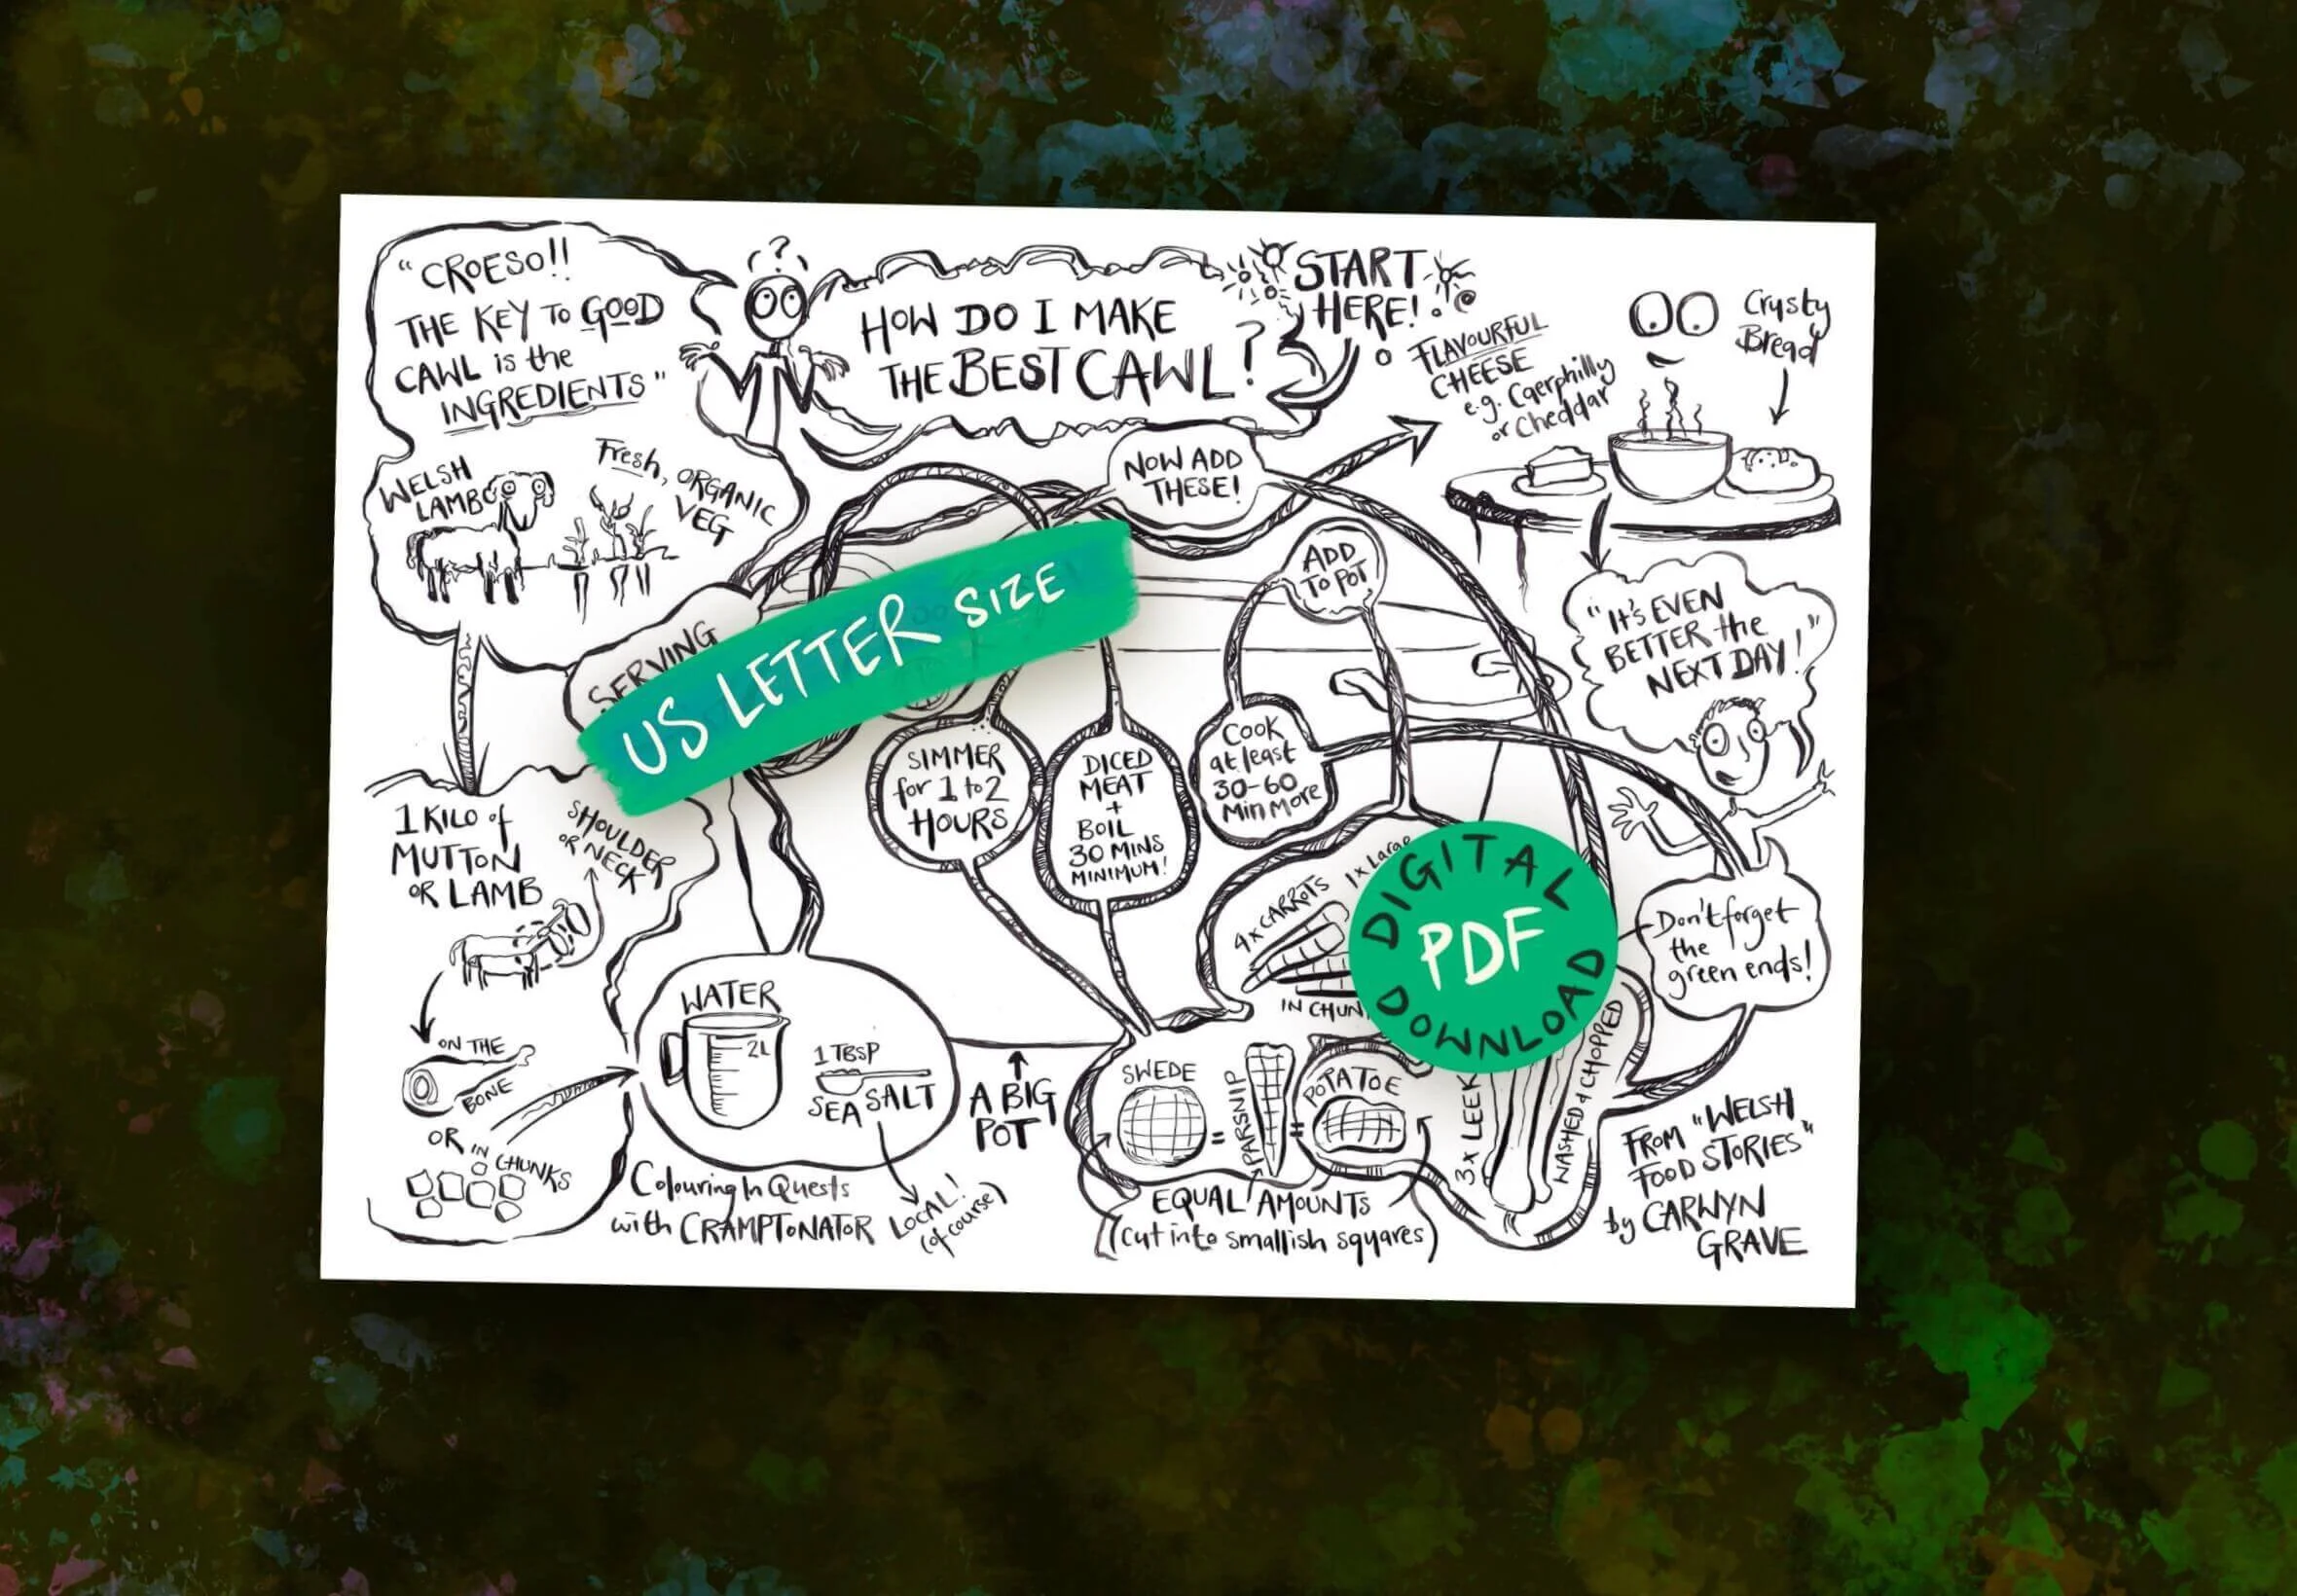 "CROESO!!
THE KEY TO GOOD
CAWL is the
INGREDIENTS"
WELSH
LAMB
Fresh, ORGANIC
VEG
?
HOW DO I MAKE
THE BEST CAWL?
START
HERE!
FLAVOURFUL
CHEESE
e.g. Caerphilly
or Cheddar
Crusty
Bread
NOW ADD
THESE!
ADD
TO POT
"It's EVEN
BETTER the
NEXT DAY!"
SERVING
US LETTER SIZE
SIMMER
for 1 to 2
HOURS
DICED
MEAT
+
BOIL
30 MINS
MINIMUM!
COOK
at least
30-60
Min More
1 KILO of
MUTTON
OR LAMB
SHOULDER
OR NECK
ON THE
BONE
OR IN CHUNKS
WATER
2L
1 TBSP
SEA SALT
LOCAL!
(of course)
A BIG
POT
4 x CARROTS
1 x Large
IN CHUN
DIGITAL
PDF
DOWNLOAD
Don't forget
the
green ends!
SWEDE
=
PARSNIP
=
POTATOE
3 x LEEK
WASHED & CHOPPED
EQUAL AMOUNTS
(cut into smallish squares)
Colouring In Quests
with CRAMPTONATOR
FROM "WELSH
FOOD STORIES"
by CARWYN
GRAVE